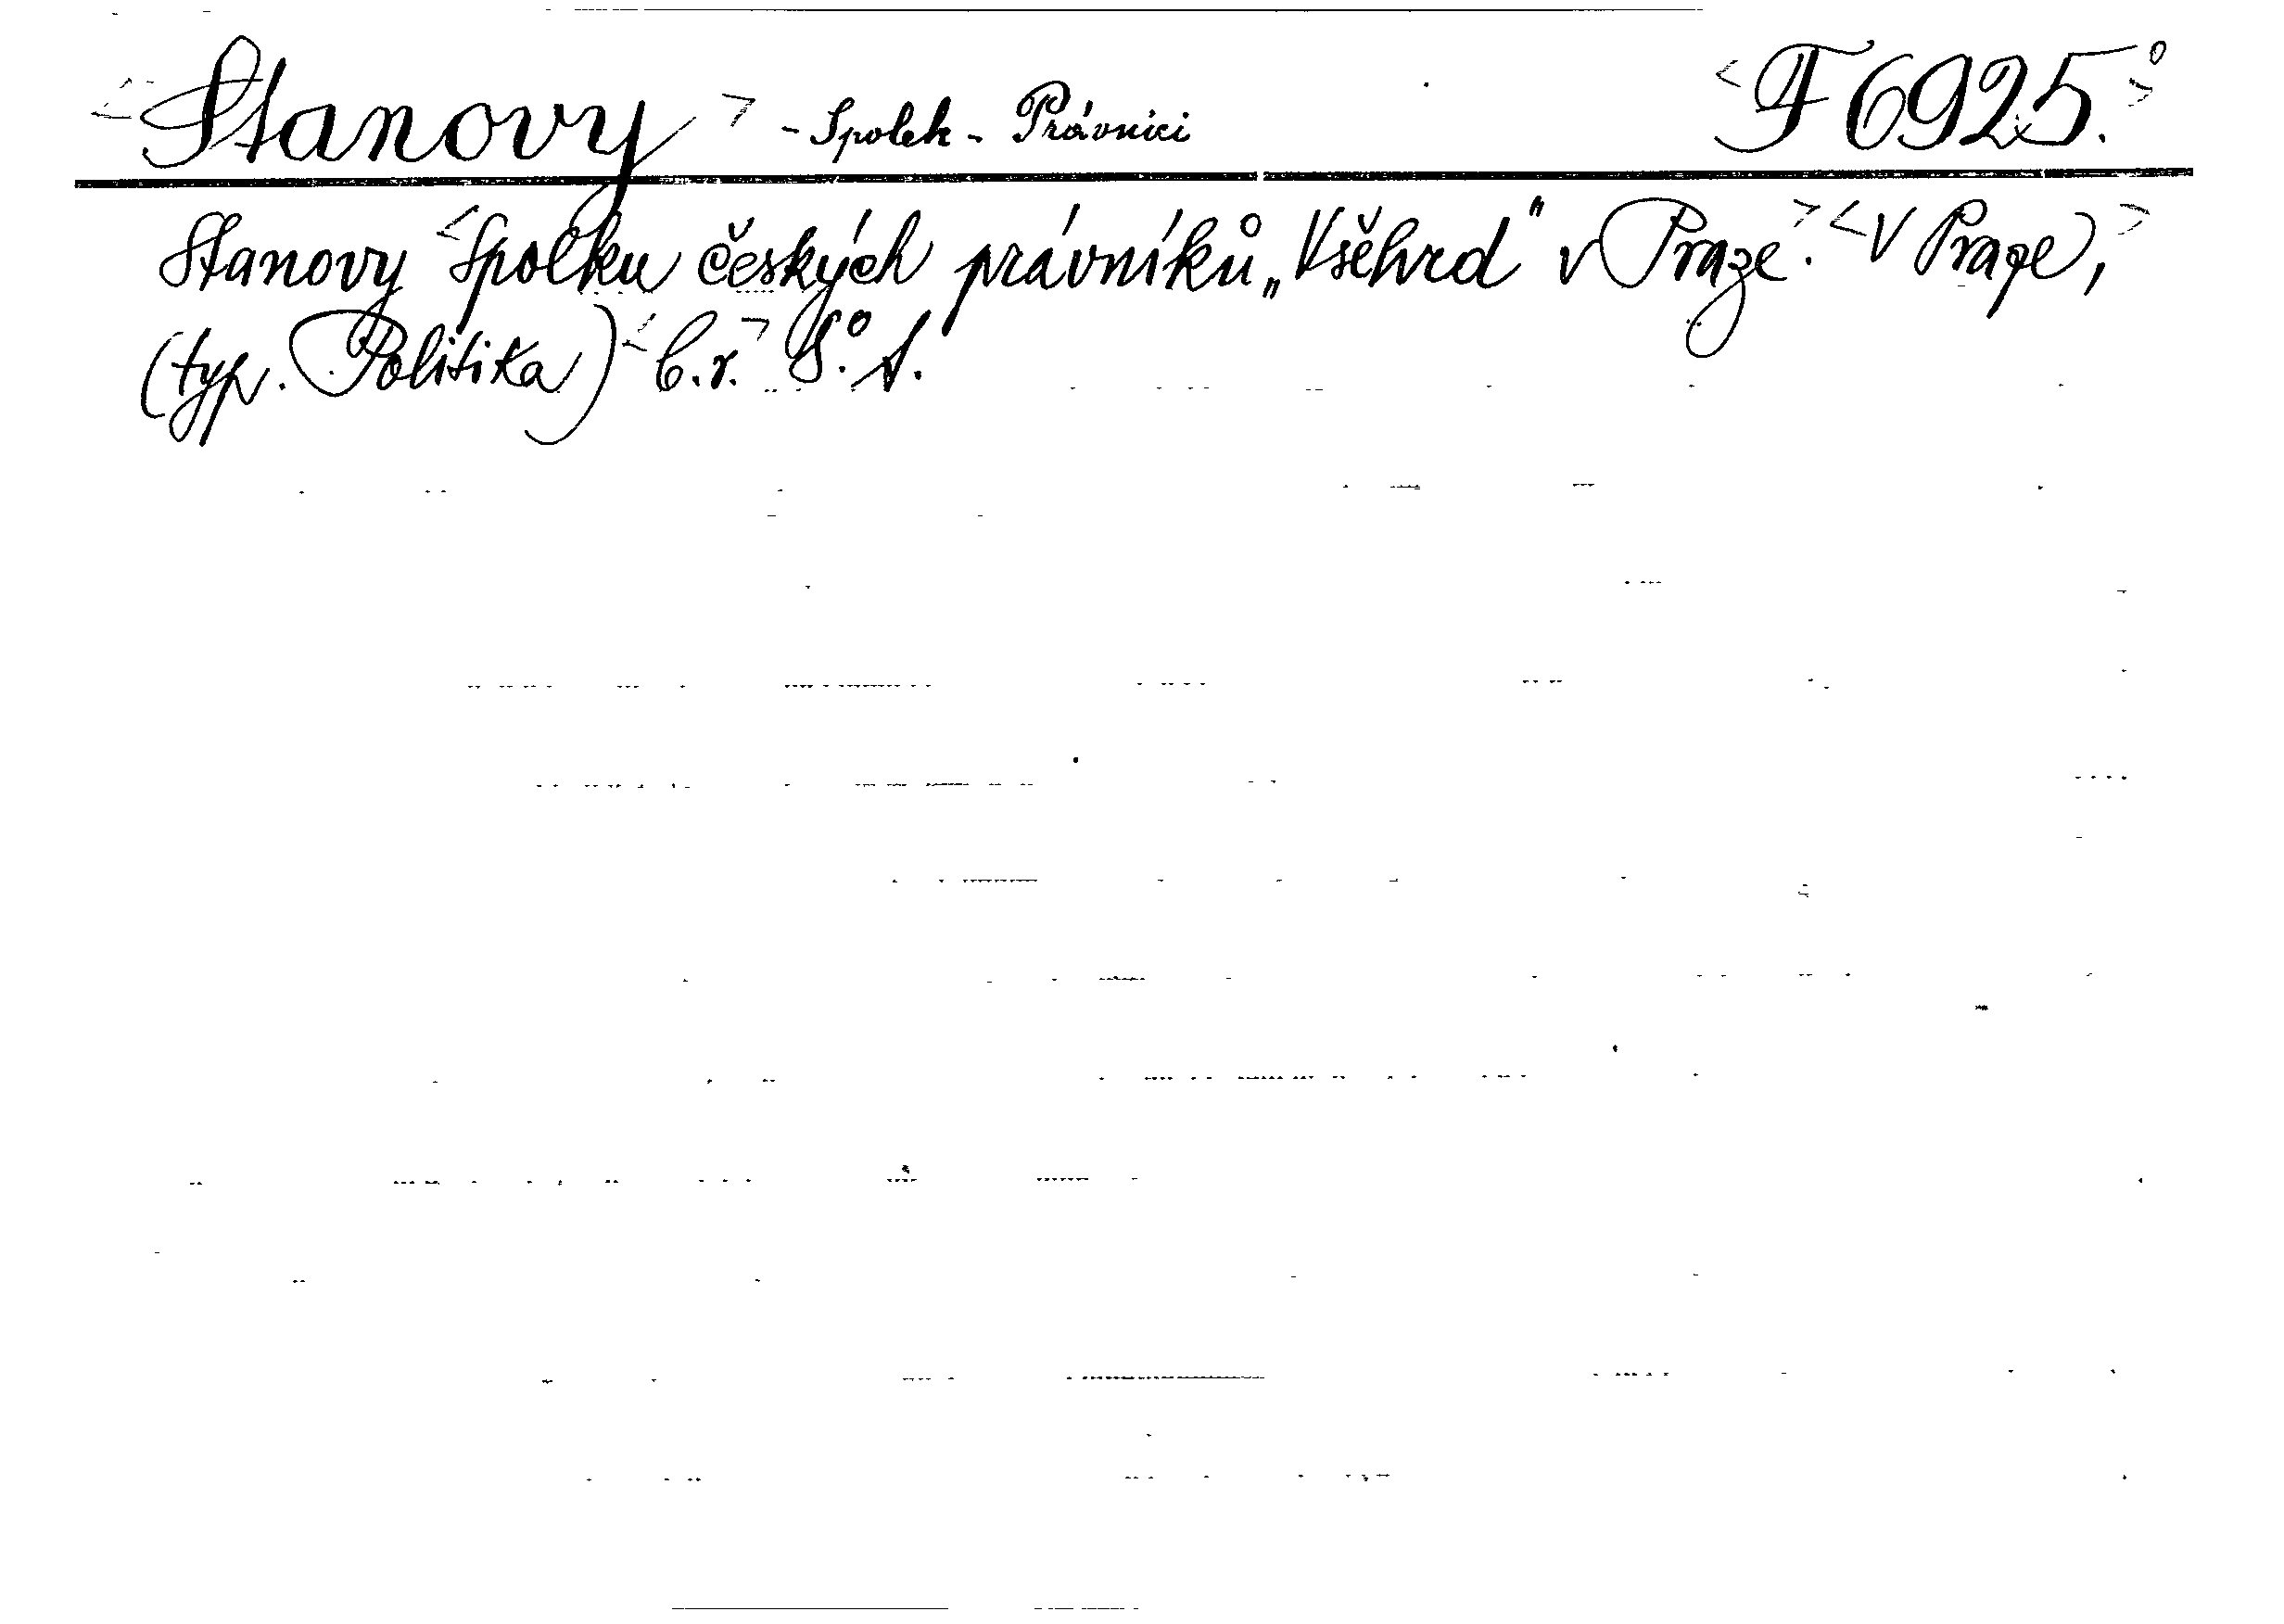 <Stanovy> - Spolek - Právníci <F 6925.>
Stanovy <Spolku českých právníků „Všehrd" v Praze.> <V Praze,>
(typ. Politika) <b.r.> 8°. A.